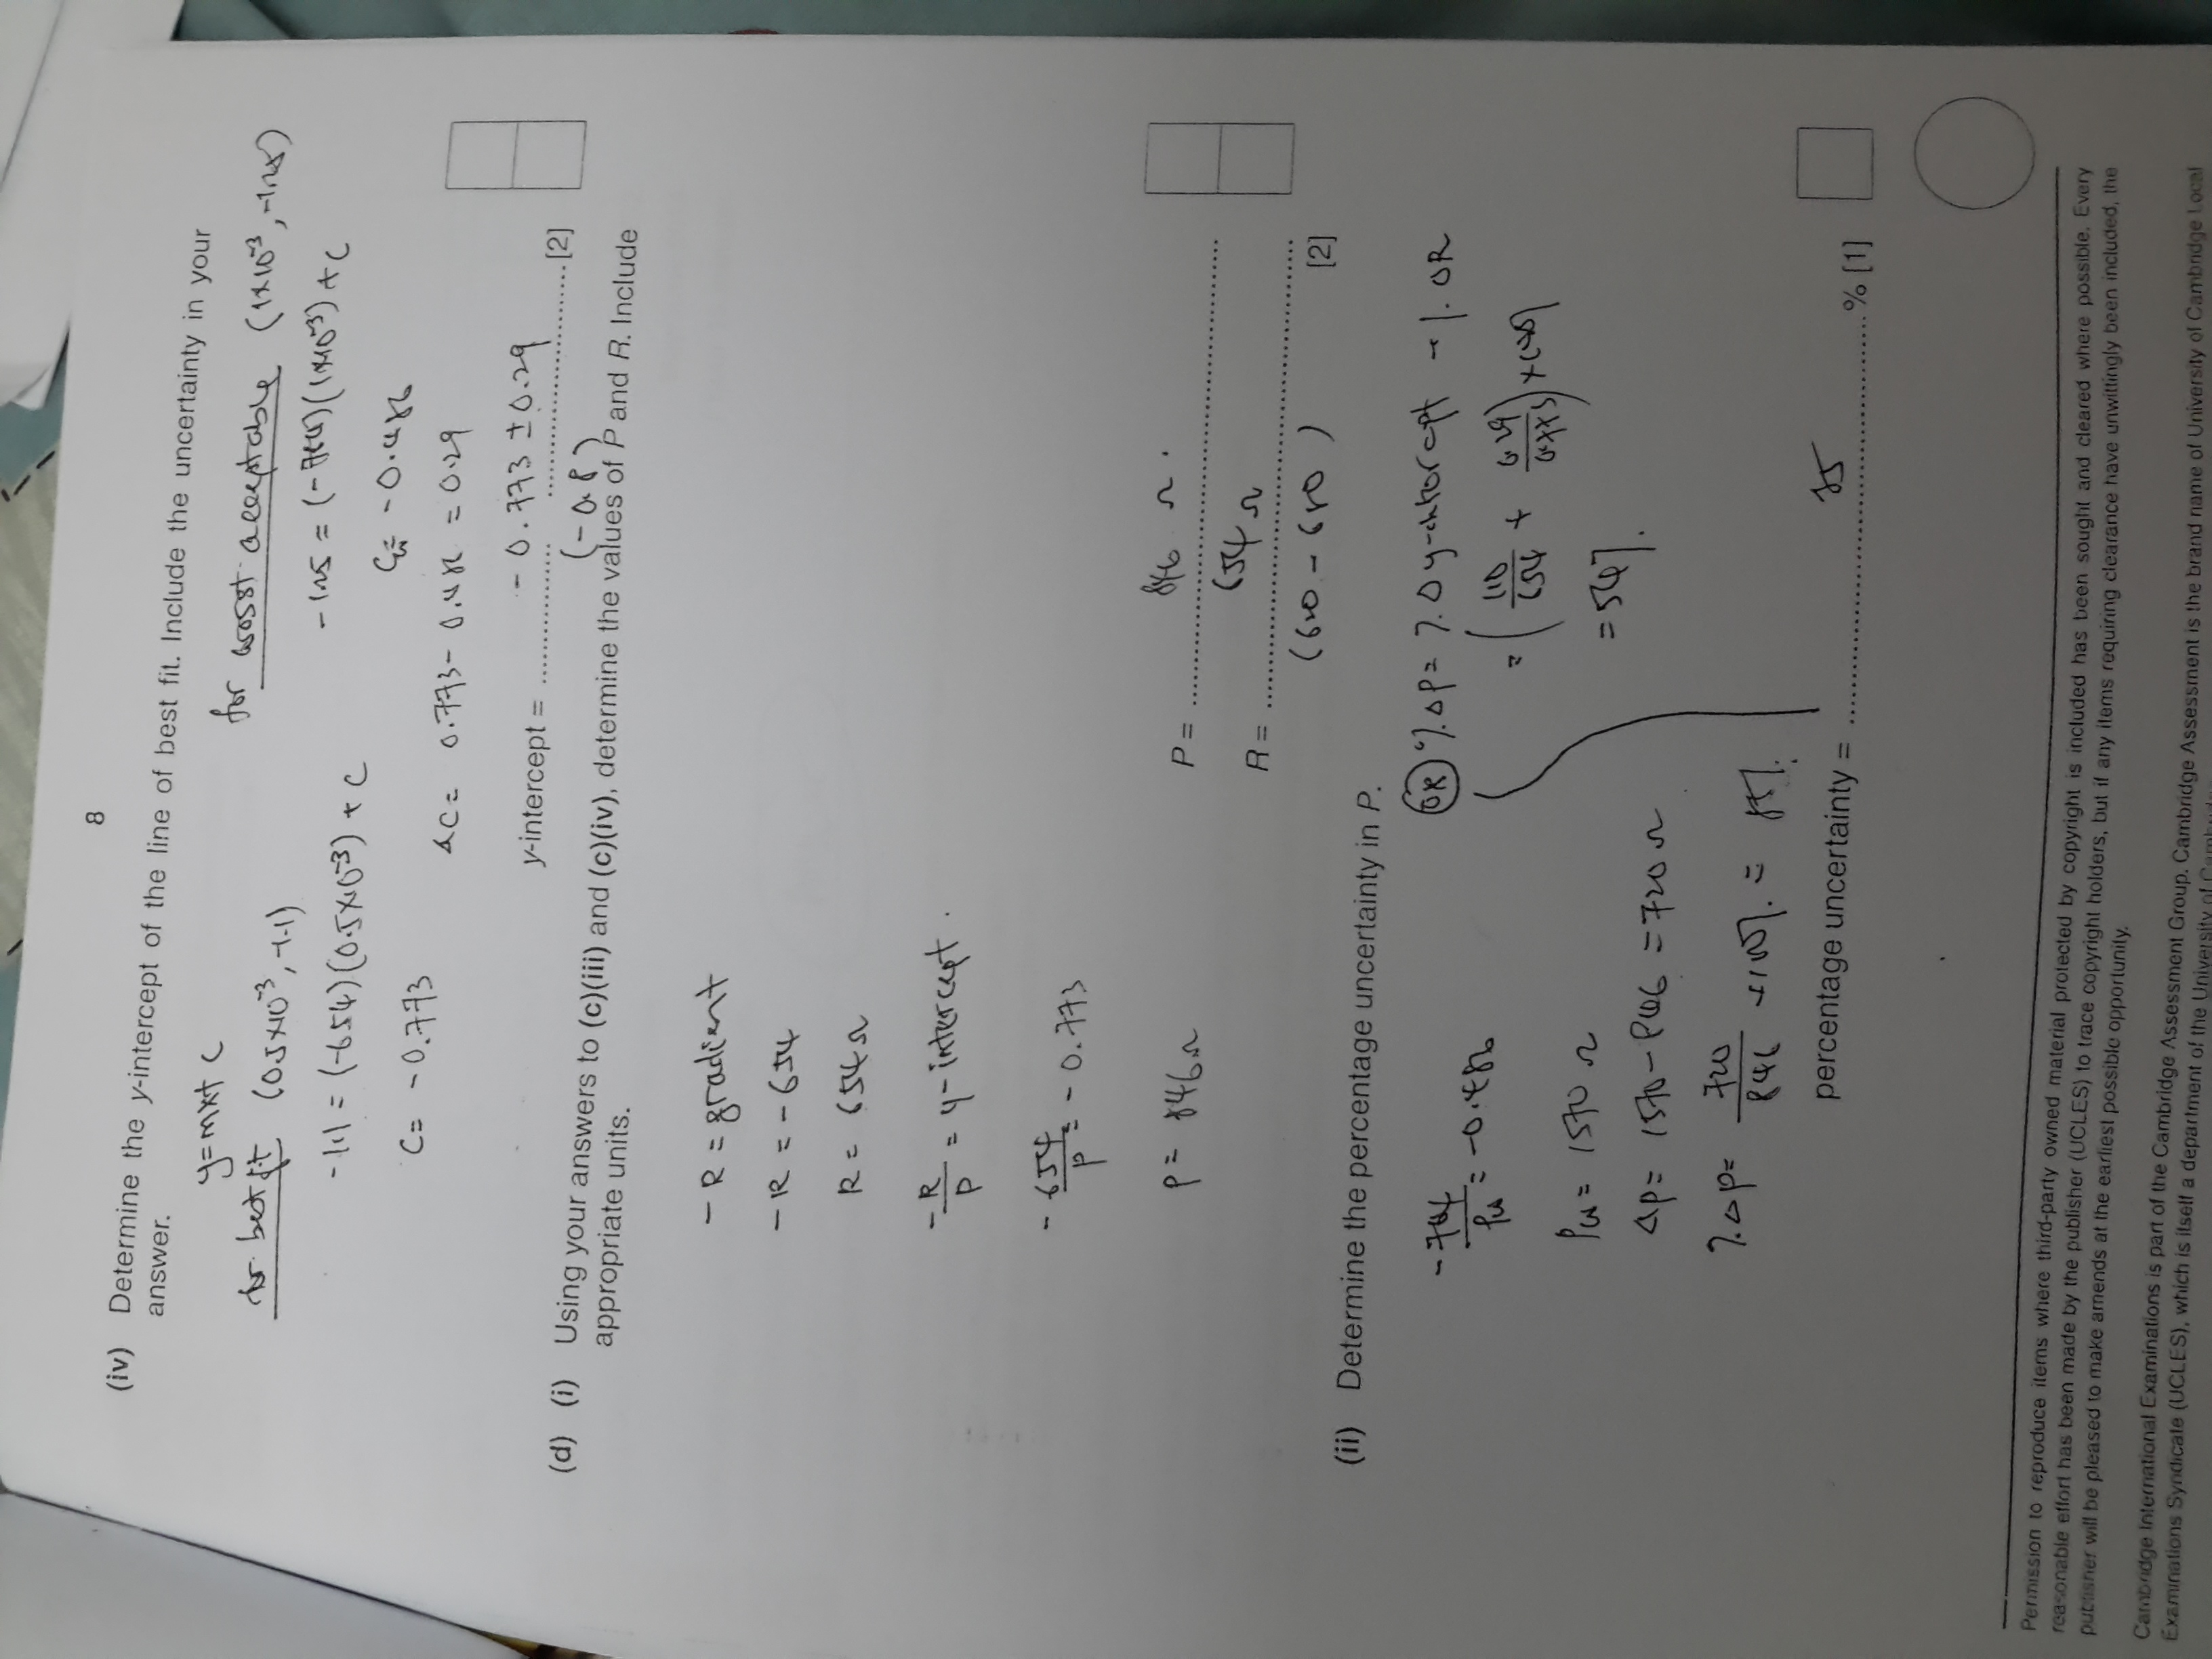 8
(iv) Determine the y-intercept of the line of best fit. Include the uncertainty in your
answer.
y=mx+ c
for best fit (0.5×10⁻³, -1.1)
-1.1 = (-654)(0.5×10⁻³) + c
C= -0.773
for worst acceptable (1×10⁻³, -1.25)
-1.25 = (-764)(1×10⁻³) + c
= -0.486
ΔC= 0.773- 0.486 = 0.29
y-intercept = - 0.773 ± 0.29 [2]
(-0.8)
(d) (i) Using your answers to (c)(iii) and (c)(iv), determine the values of P and R. Include
appropriate units.
- R = gradient
- R = - 654
R = 654 Ω
- R/P = y-intercept.
- 654/P = - 0.773
P = 846 Ω
P = 846 Ω.
R = 654 Ω
[2]
(ii) Determine the percentage uncertainty in P.
- 764/Pw = -0.486
Pw = 1570 Ω
ΔP= 1570 - 846 = 720 Ω
%ΔP= 720/846 ×100% = 85%.
OR %ΔP= %Δy-intercept + %ΔR
= (110/654 + 0.29/0.773) ×100%
= 54%.
percentage uncertainty = 85 % [1]
Permission to reproduce items where third-party owned material protected by copyright is included has been sought and cleared where possible. Every
reasonable effort has been made by the publisher (UCLES) to trace copyright holders, but if any items requiring clearance have unwittingly been included, the
publisher will be pleased to make amends at the earliest possible opportunity.
Cambridge International Examinations is part of the Cambridge Assessment Group. Cambridge Assessment is the brand name of University of Cambridge Local
Examinations Syndicate (UCLES), which is itself a department of the University of